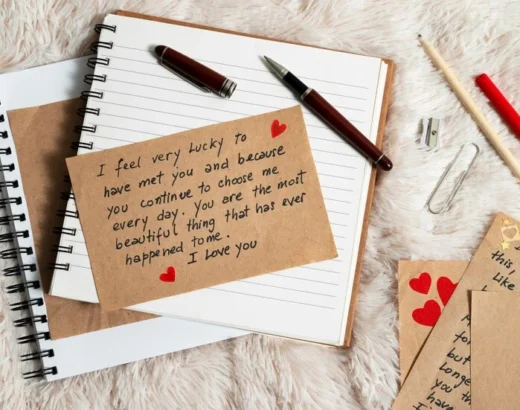 I feel very lucky to
have met you and because
you continue to choose me
every day. You are the most
beautiful thing that has ever
happened to me.
I love you
this,
Like
but
Longe
you th
hav